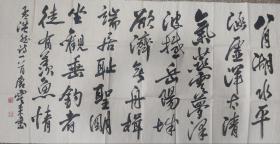 八月湖水平
涵虛混太清
氣蒸雲夢澤
波撼岳陽城
欲濟無舟楫
端居耻聖明
坐觀垂釣者
徒有羨魚情
孟浩然詩一首